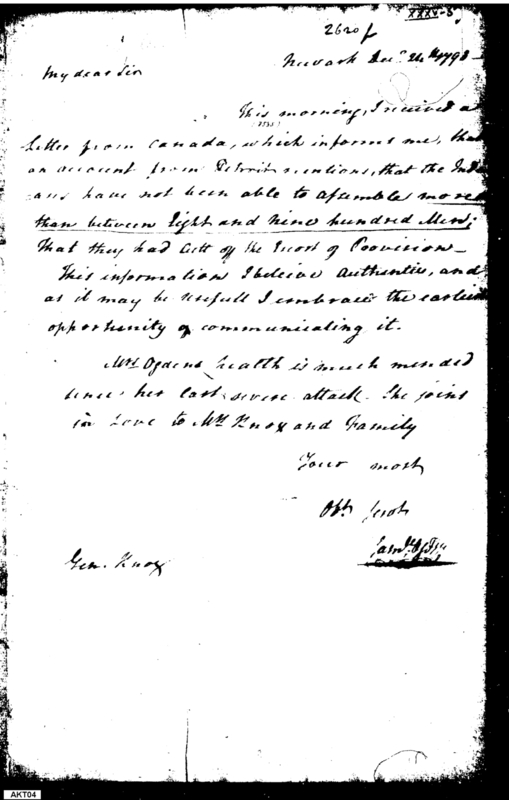 XXXV-5
2620f
Newark Decr 24th 1793
My dear Sir
This morning, I received a
Letter from Canada, which informs me, that
an account from Detroit mentions, that the Indi
ans have not been able to assemble more
than between Eight and Nine hundred Men;
That they had cutt off the Escort of Provision—
This information I beleive Authentic, and
as it may be usefull I embrace the earliest
opportunity of communicating it.
Mrs Ogdens health is much mended
since her last severe attack. She joins
in Love to Mrs Knox and Family
Your most
Obt Servt
Saml Ogden
Gen. Knox
AKT04